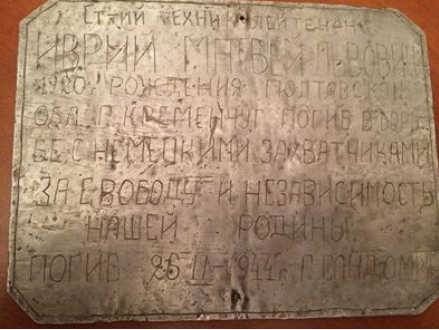 СТ-ИЙ ТЕХНИК ЛЕЙТЕНАН
МАТВЕЙ ЛЬВОВИЧ
1920 РОЖДЕНИЯ ПОЛТАВСКОЙ
ОБЛ. Г. КРЕМЕНЧУГ ПОГИБ В БОРЬ
БЕ С НЕМЕЦКИМИ ЗАХВАТЧИКАМИ
ЗА СВОБОДУ И НЕЗАВИСИМОСТЬ
НАШЕЙ РОДИНЫ
ПОГИБ 1944 Г. САНДОМИ